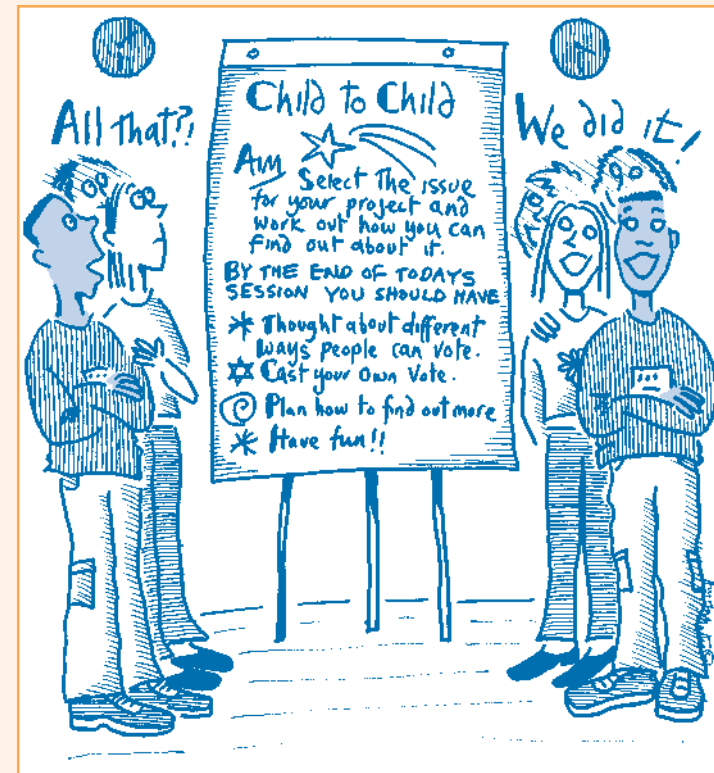 All that?!
We did it!
Child to Child
AIM
Select The issue
for your project and
work out how you can
find out about it.
BY THE END OF TODAYS
SESSION YOU SHOULD HAVE
Thought about different
ways people can vote.
Cast your own Vote.
Plan how to find out more
Have fun!!